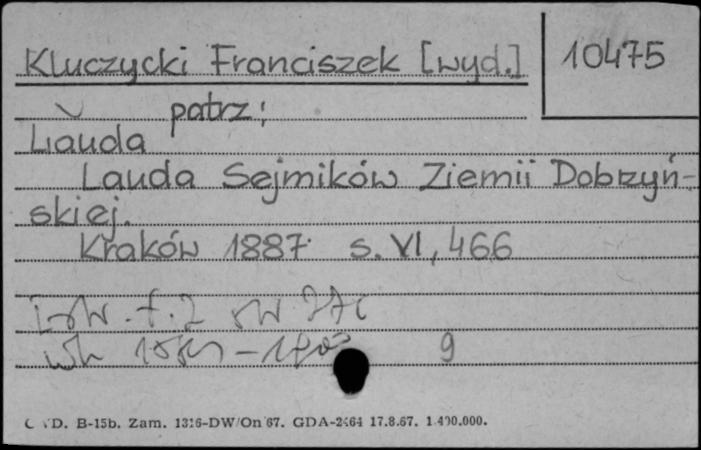 Kluczycki Franciszek [wyd.]
10475
patrz:
Lauda
Lauda Sejmików Ziemii Dobrzyń-
skiej.
Kraków 1887 s. VI, 466
9
D. B-15b. Zam. 1316-DW/On 67. GDA-2464 17.8.67. 1.400.000.